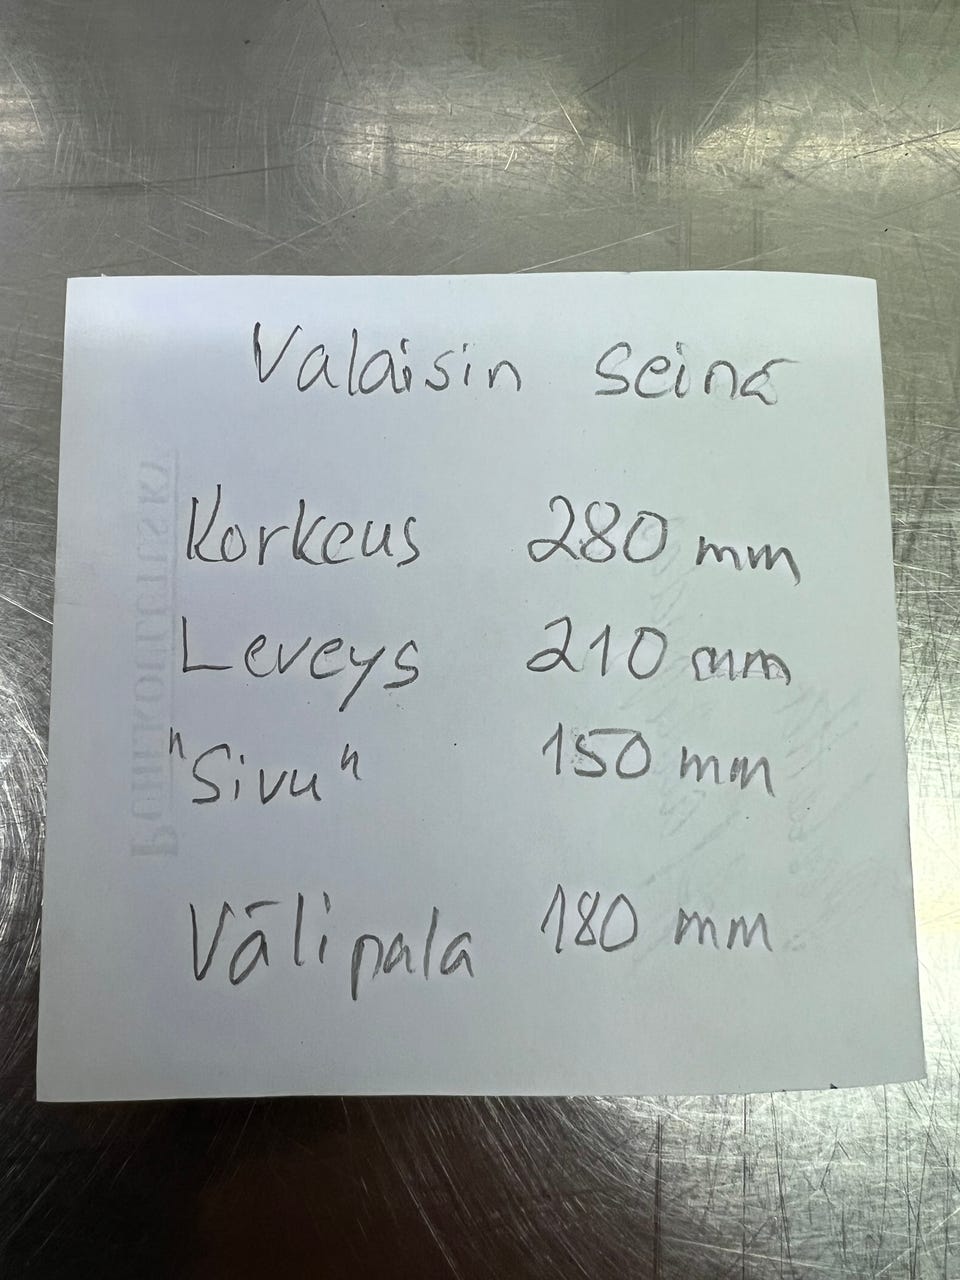 Valaisin seinä
Korkeus 280 mm
Leveys 210 mm
"Sivu" 150 mm
Välipala 180 mm